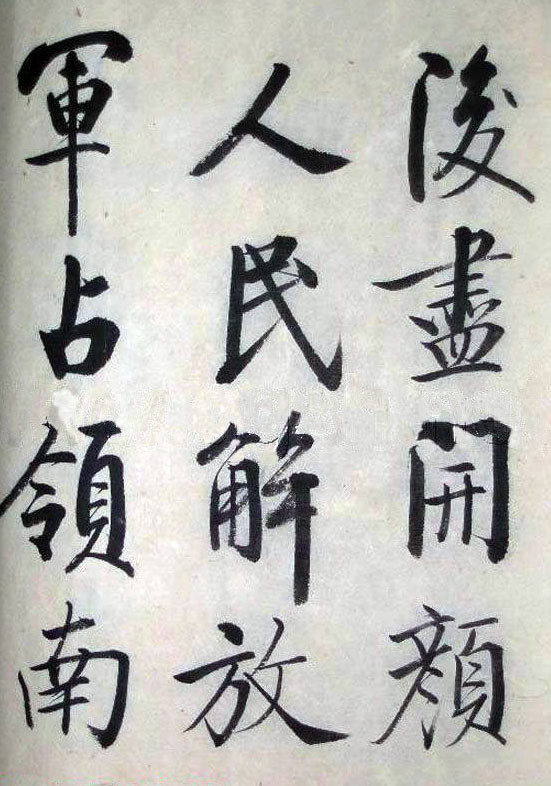 後盡開顏
人民解放
軍占領南